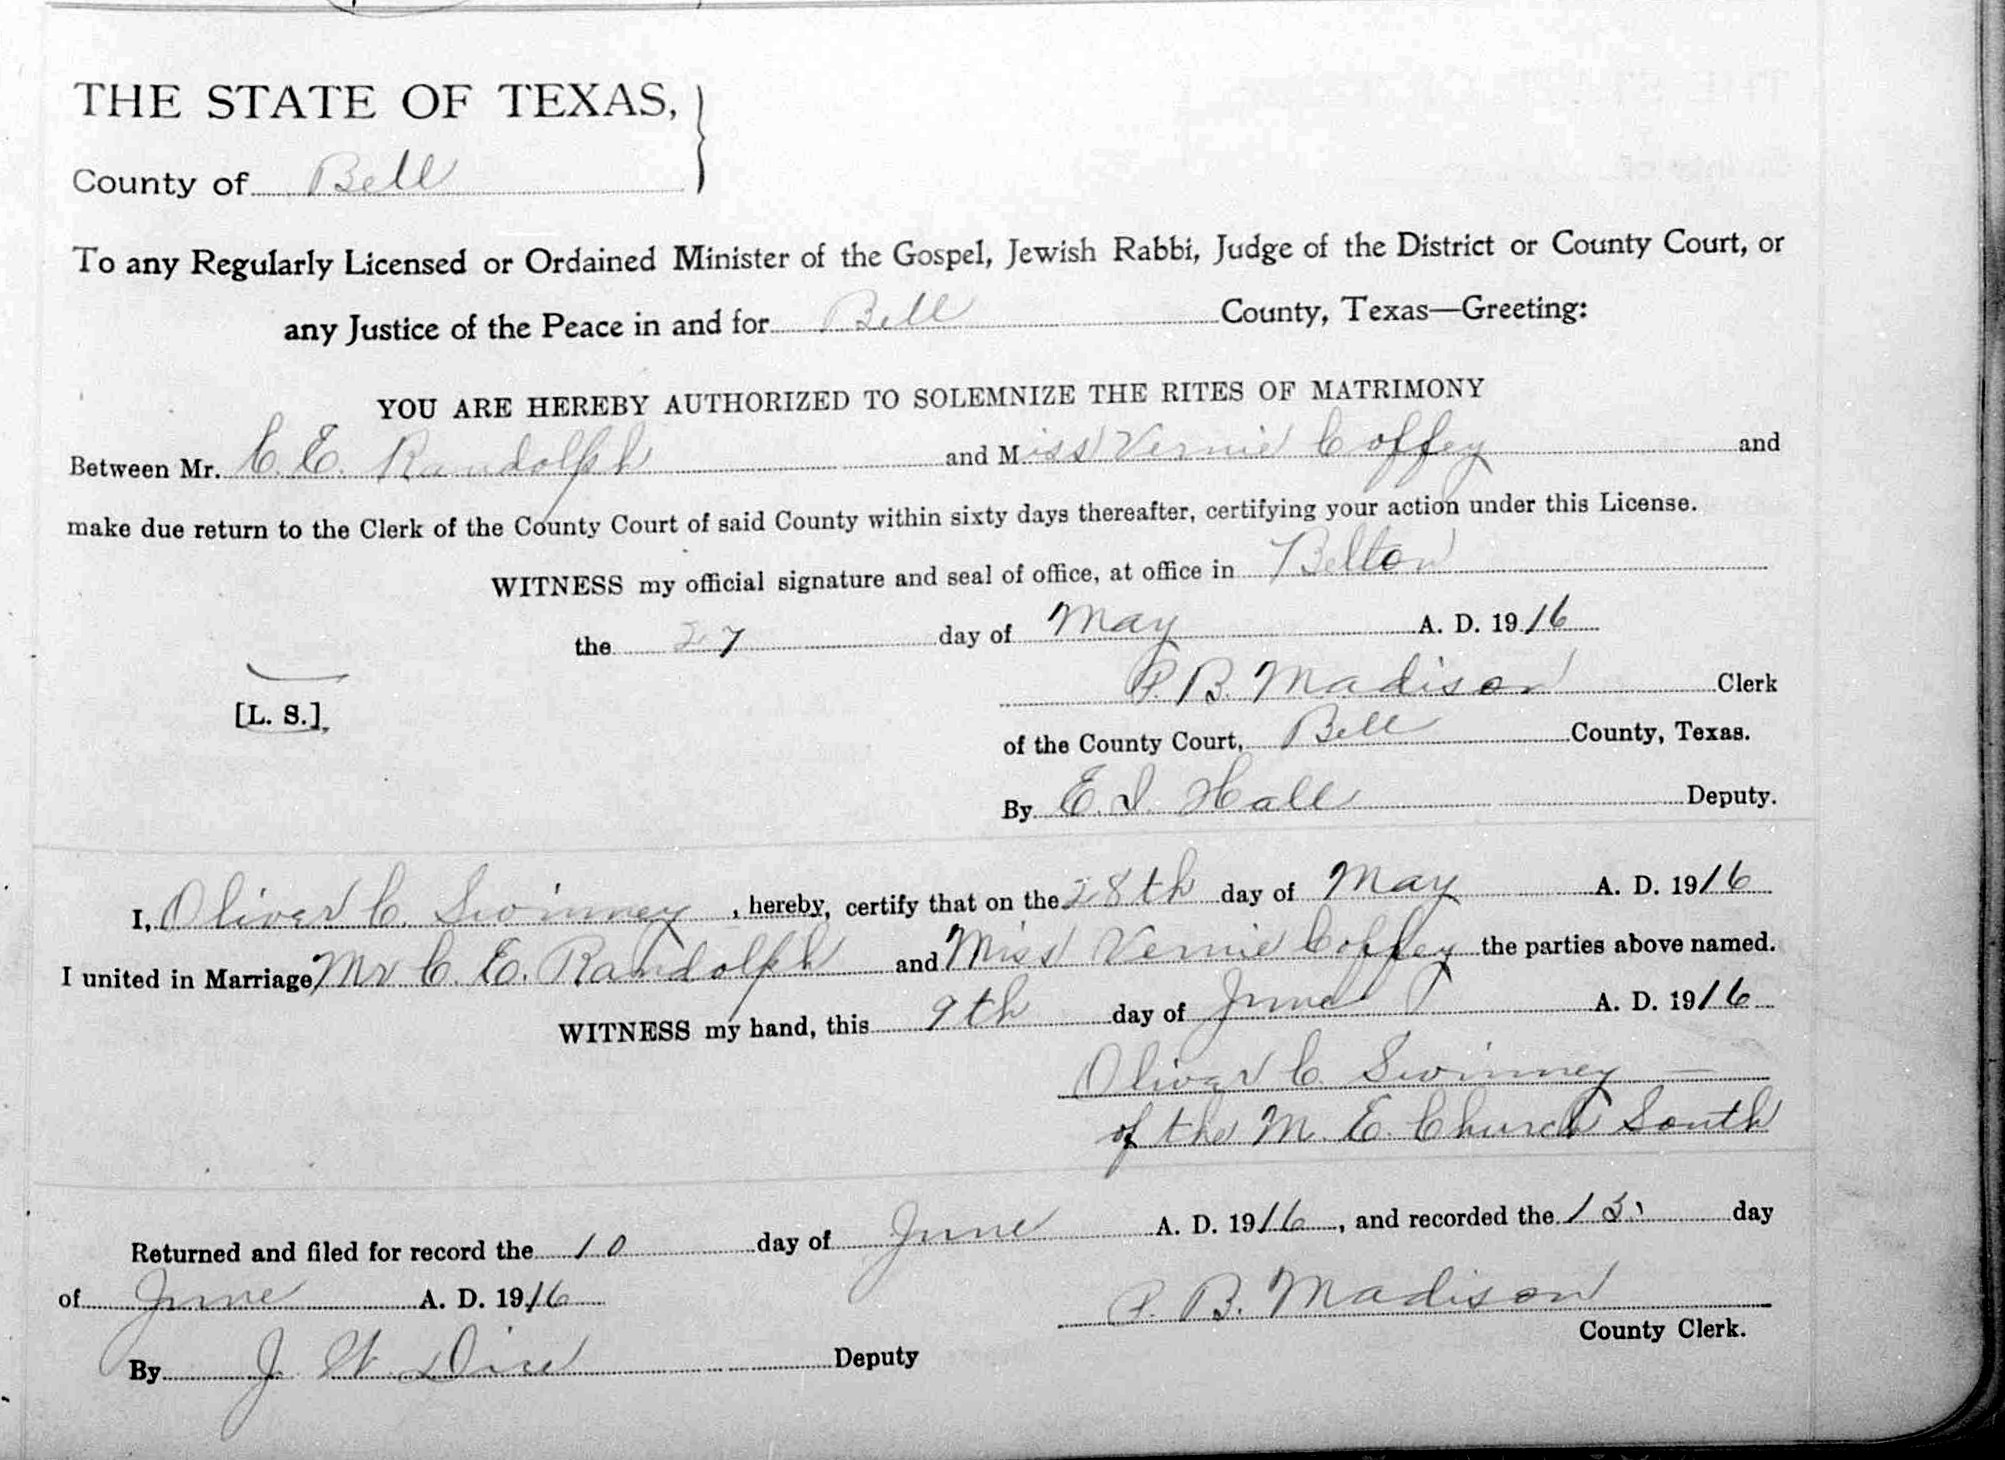 THE STATE OF TEXAS,
County of Bell
To any Regularly Licensed or Ordained Minister of the Gospel, Jewish Rabbi, Judge of the District or County Court, or
any Justice of the Peace in and for Bell County, Texas—Greeting:
YOU ARE HEREBY AUTHORIZED TO SOLEMNIZE THE RITES OF MATRIMONY
Between Mr. C. E. Randolph and Miss Vernie Coffey and
make due return to the Clerk of the County Court of said County within sixty days thereafter, certifying your action under this License.
WITNESS my official signature and seal of office, at office in Belton
the 27 day of May A. D. 1916
P. B. Madison Clerk
[L. S.]
of the County Court, Bell County, Texas.
By E. I. Hall Deputy.
I, Oliver C. Swinney, hereby, certify that on the 28th day of May A. D. 1916
I united in Marriage Mr C. E. Randolph and Miss Vernie Coffey the parties above named.
WITNESS my hand, this 9th day of June A. D. 1916
Oliver C. Swinney —
of the M. E. Church South
Returned and filed for record the 10 day of June A. D. 1916, and recorded the 13 day
of June A. D. 1916
P. B. Madison
County Clerk.
By J. W. Deputy